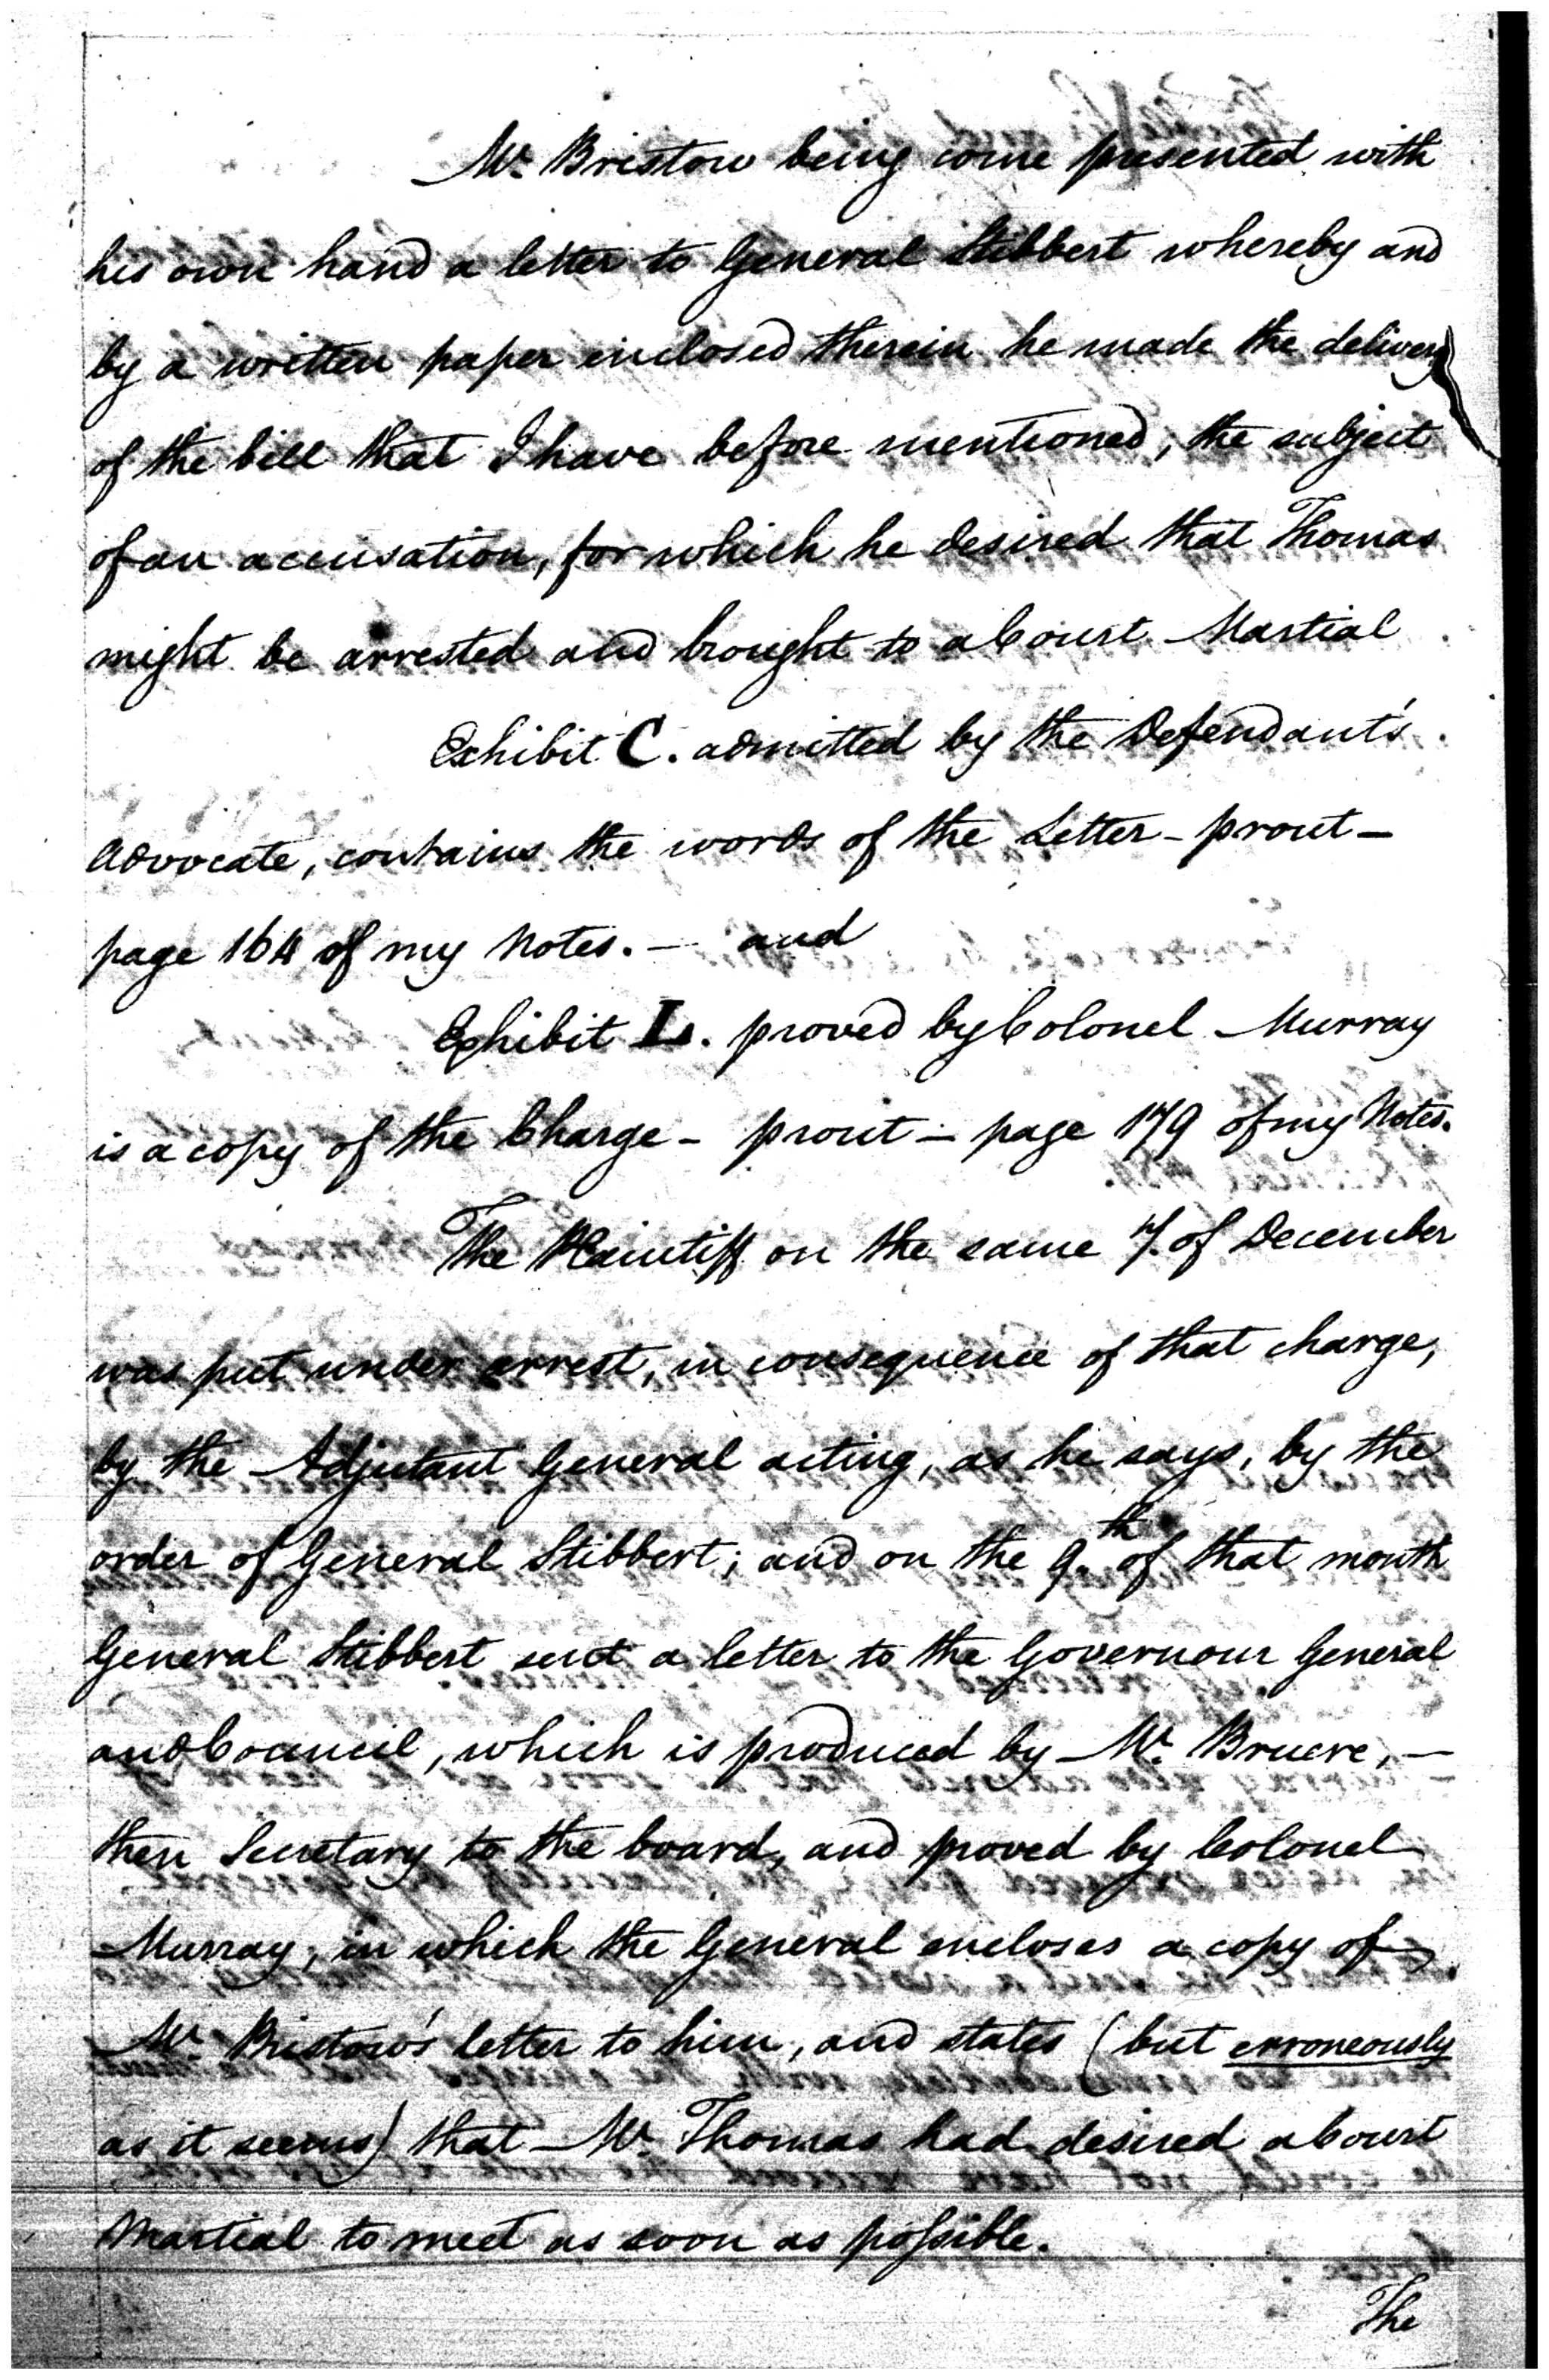 Mr. Bristow being come presented with
his own hand a letter to General Stibbert whereby and
by a written paper enclosed therein he made the delivery
of the bill that I have before mentioned, the subject
of an accusation, for which he desired that Thomas
might be arrested and brought to a Court Martial
Exhibit C. admitted by the Defendant's
Advocate, contains the words of the Letter - prout -
page 164 of my Notes. - and
Exhibit L. proved by Colonel Murray
is a copy of the Charge - prout - page 179 of my Notes.
The Plaintiff on the same 7. of December
was put under arrest, in consequence of that charge,
by the Adjutant General acting, as he says, by the
order of General Stibbert; and on the 9.th of that month
General Stibbert sent a letter to the Governour General
and Council, which is produced by Mr. Bruere, -
then Secretary to the board, and proved by Colonel
Murray, in which the General encloses a copy of
Mr. Bristow's letter to him, and states (but erroneously
as it seems) that Mr. Thomas had desired a Court
Martial to meet as soon as possible.
The